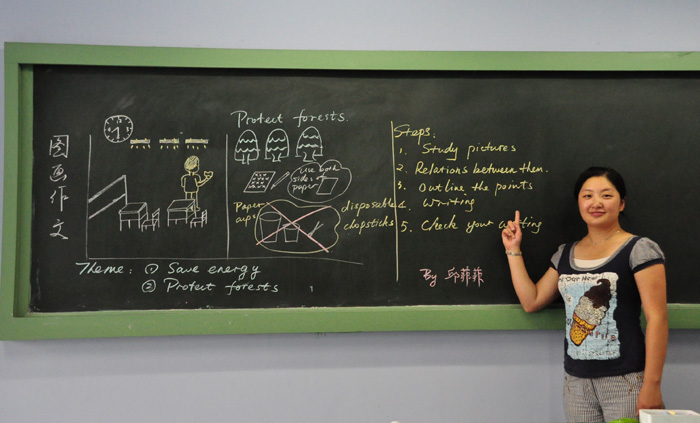 图画作文
Protect forests.
Use both
sides
paper
Paper
cups
disposable
chopsticks
Theme: ① Save energy
② Protect forests
Steps:
1. Study pictures
2. Relations between them.
3. Outline the points
4. Writing
5. Check your writing
By 邱菲菲